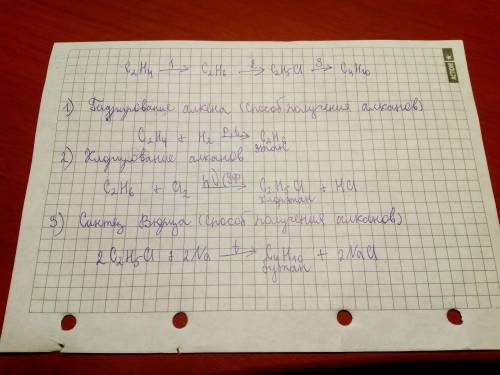 C₂H₄ —1→ C₂H₆ —2→ C₂H₅Cl —3→ C₄H₁₀
1) Гидрирование алкена (способ получения алканов)
C₂H₄ + H₂ → C₂H₆
этан
2) Хлорирование алканов
C₂H₆ + Cl₂ —hν (УФ)→ C₂H₅Cl + HCl
хлорэтан
3) Синтез Вюрца (способ получения алканов)
2C₂H₅Cl + 2Na —t→ C₄H₁₀ + 2NaCl
бутан